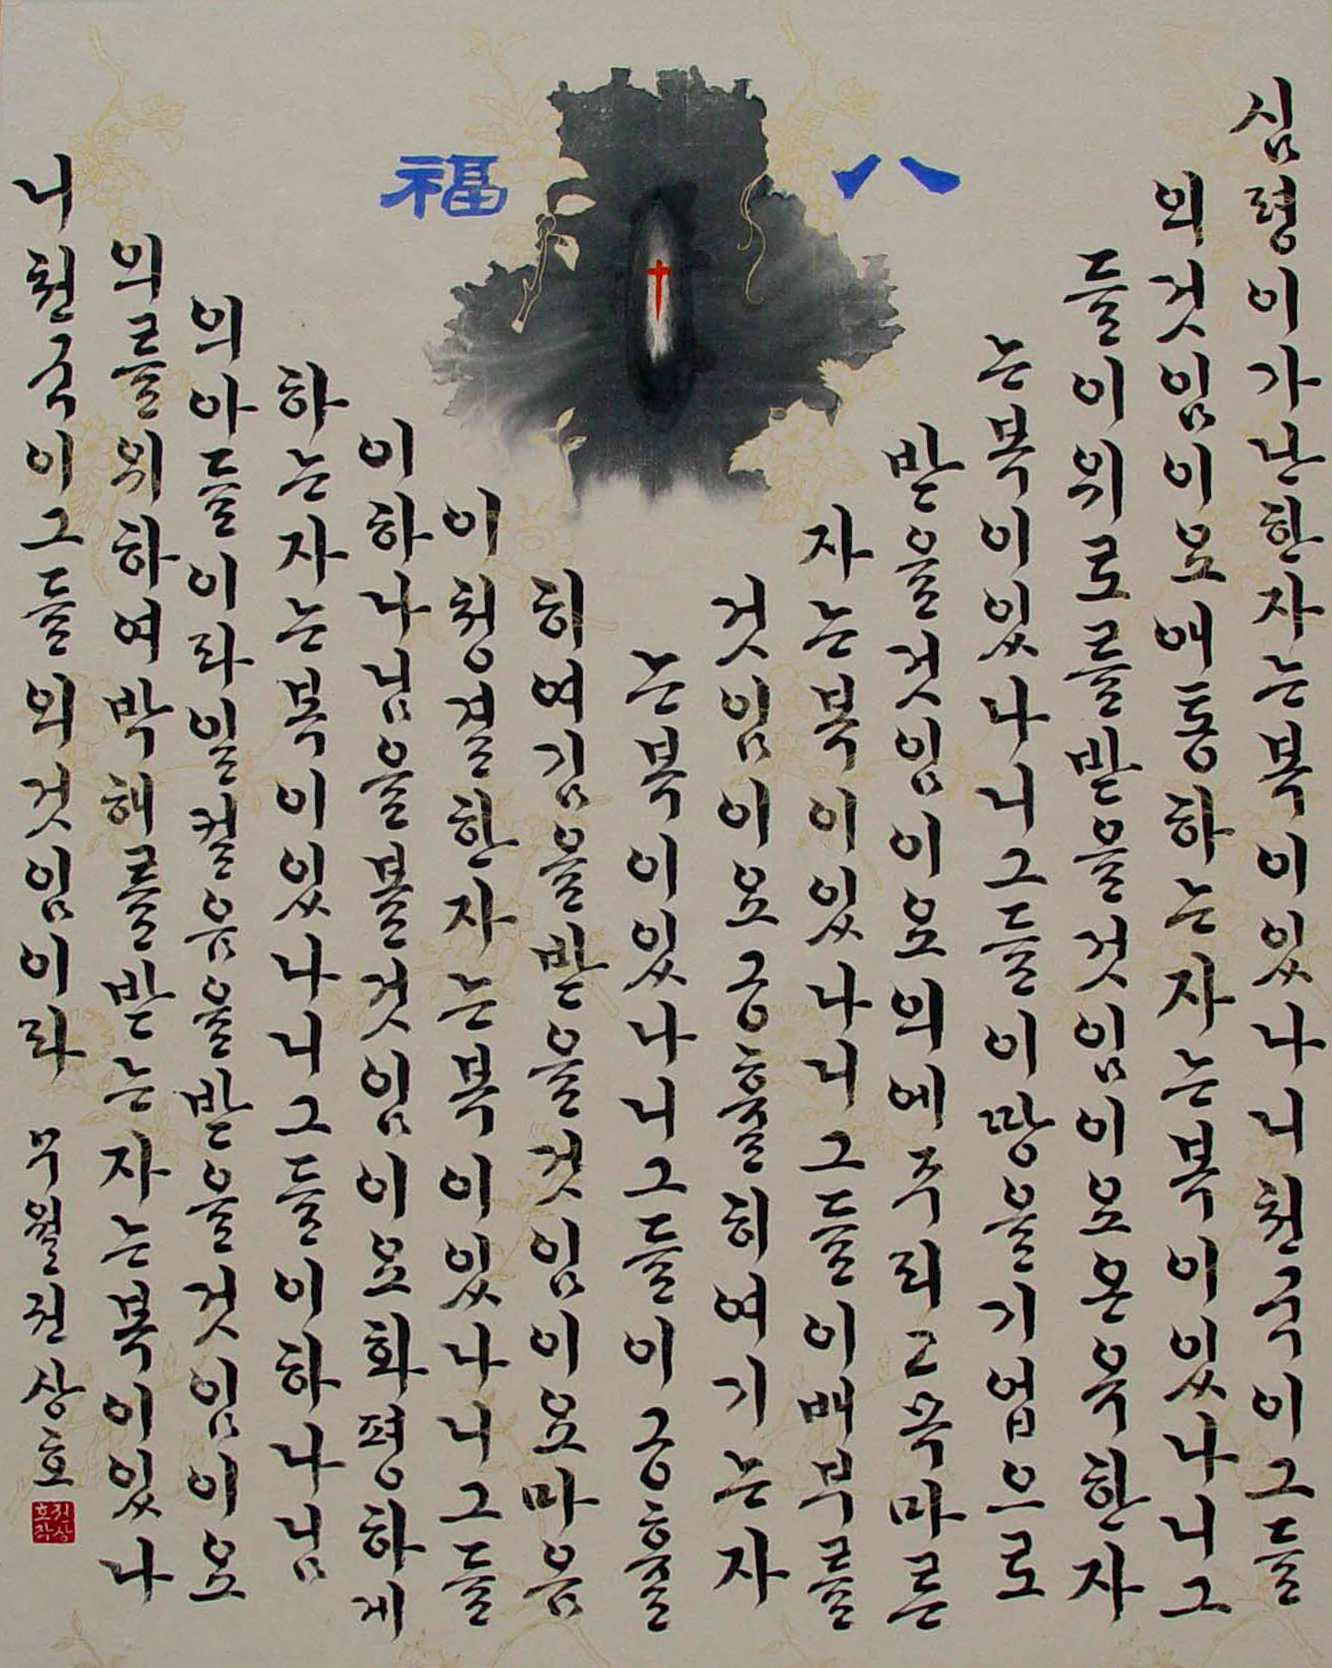 八福
심령이가난한자는복이있나니천국이그들
의것임이요애통하는자는복이있나니그
들이위로를받을것임이요온유한자
는복이있나니그들이땅을기업으로
받을것임이요의에주리고목마른
자는복이있나니그들이배부를
것임이요긍휼히여기는자
는복이있나니그들이긍휼
히여김을받을것임이요마음
이청결한자는복이있나니그들
이하나님을볼것임이요화평하게
하는자는복이있나니그들이하나님
의아들이라일컬음을받을것임이요
의를위하여박해를받는자는복이있나
니천국이그들의것임이라 무월전상호